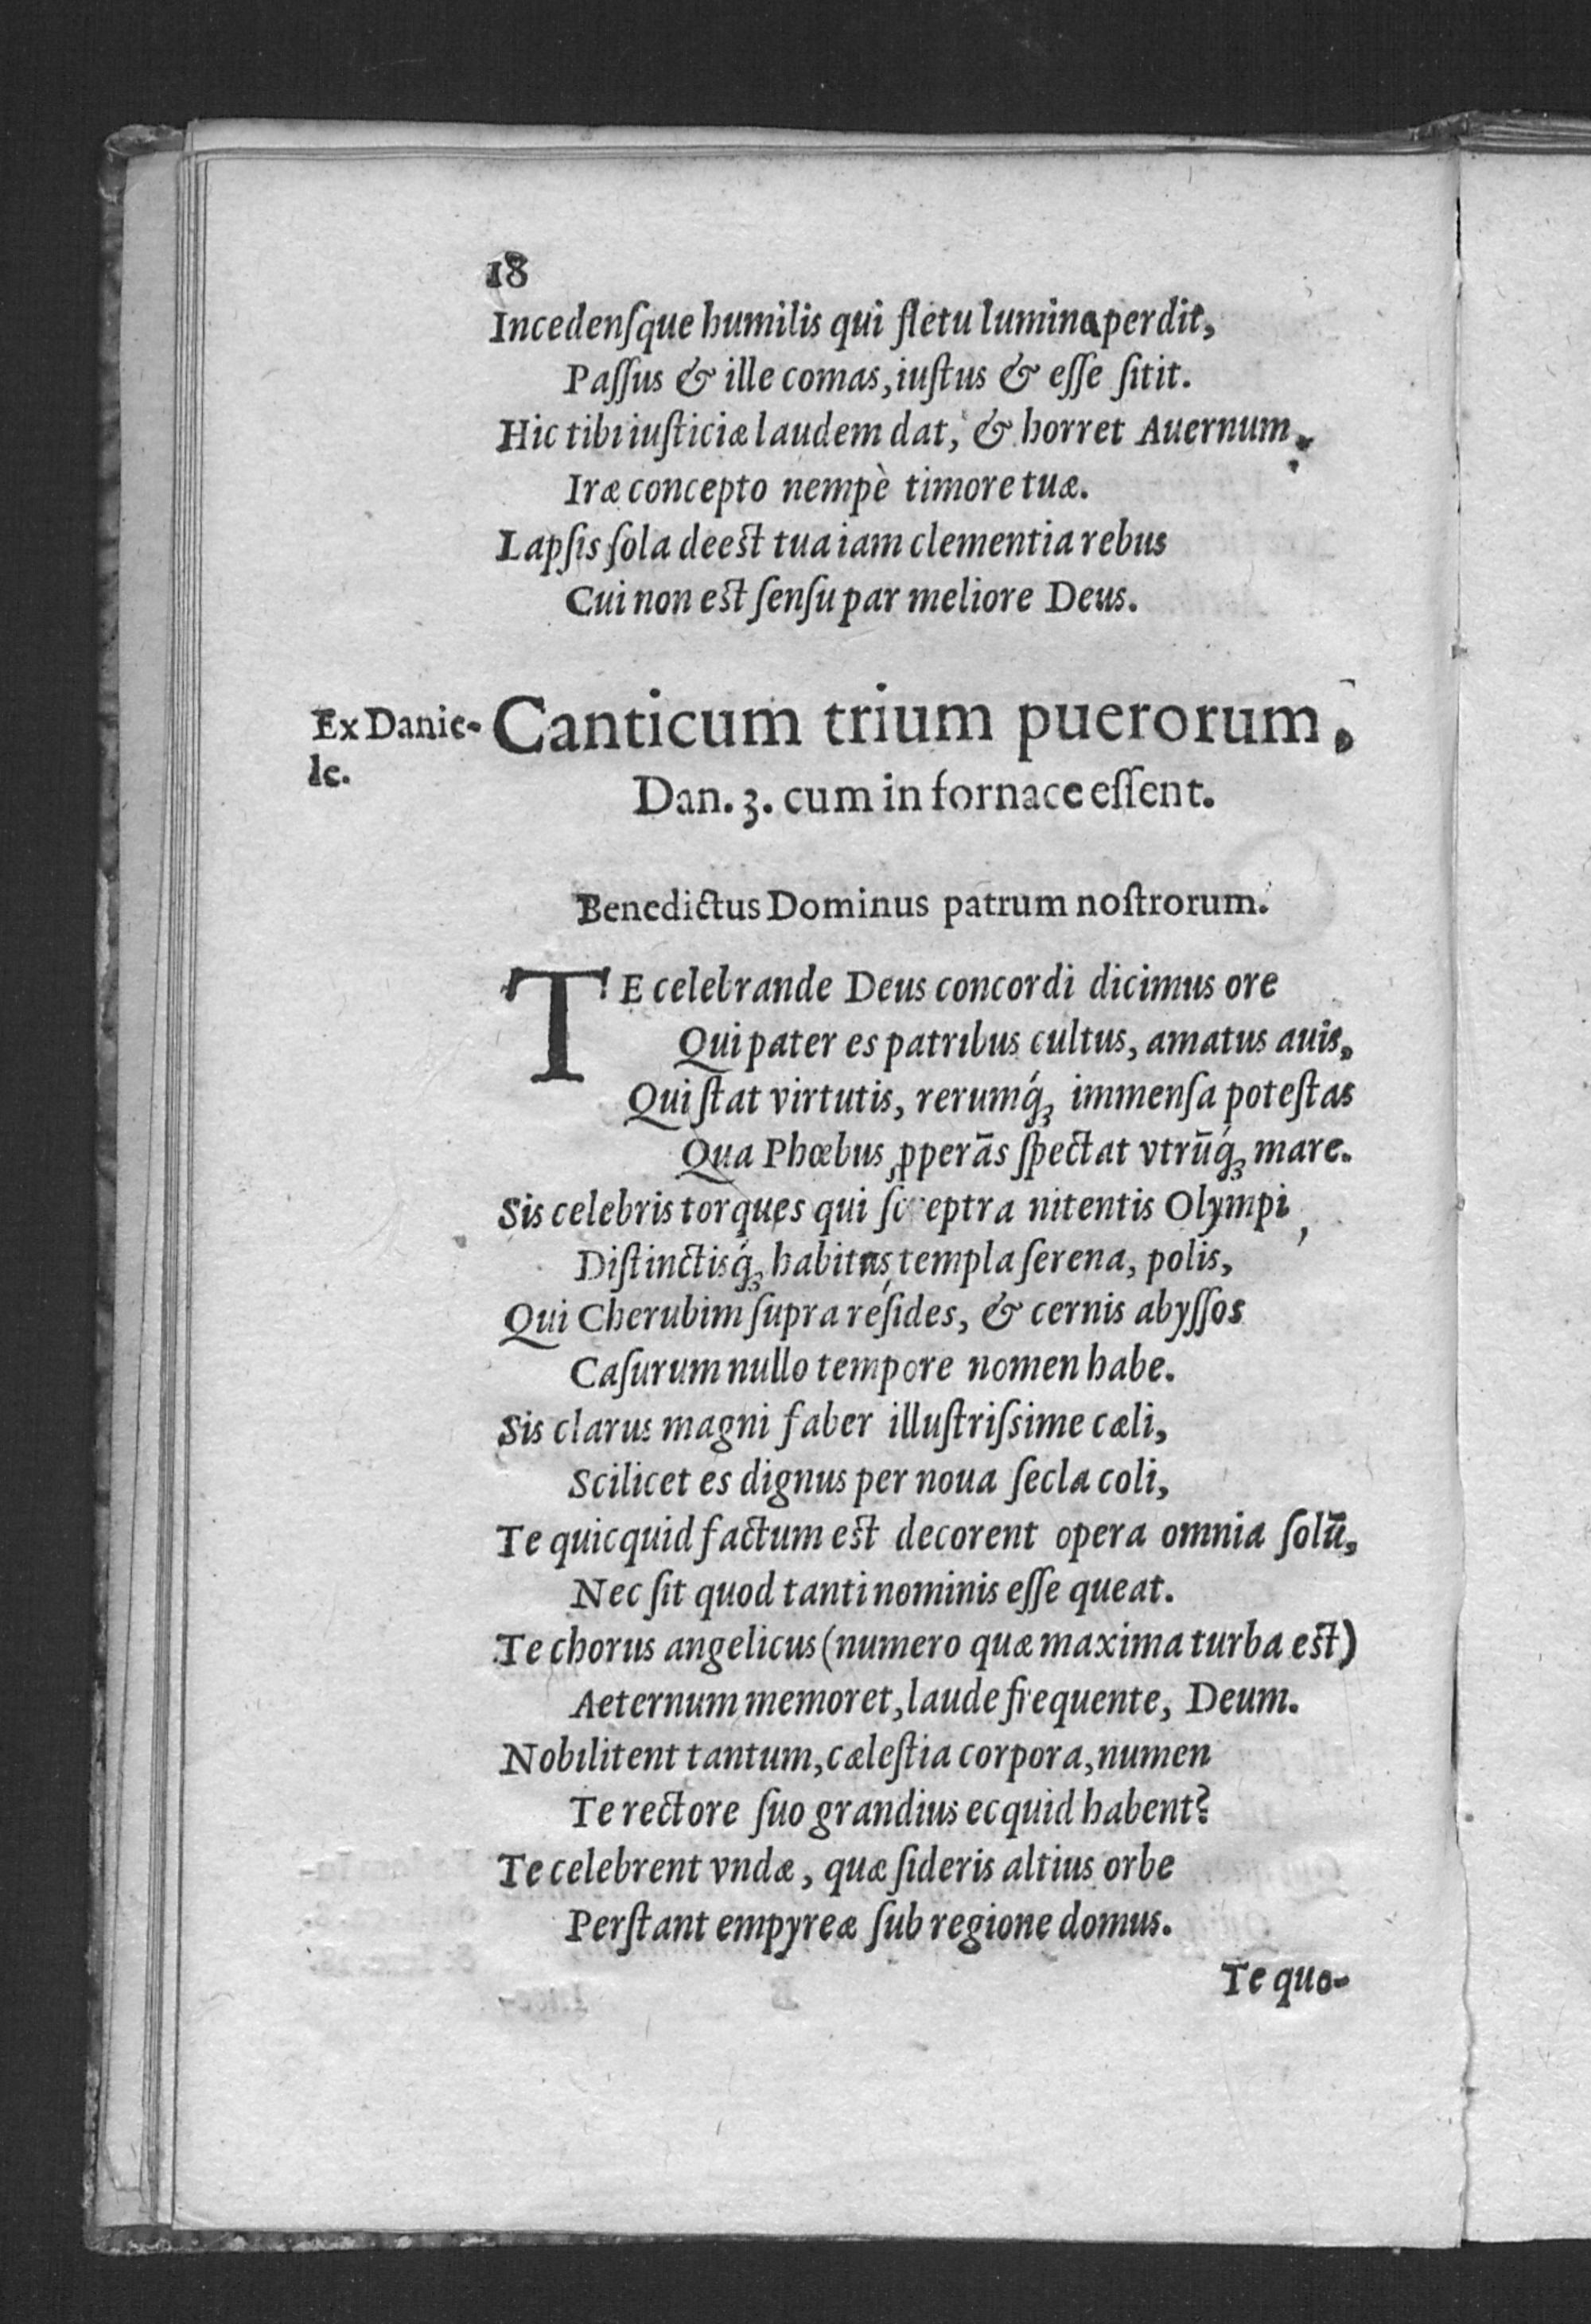 18
Incedenſque humilis qui fletu lumina perdit,
Paſſus & ille comas, iuſtus & eſſe ſitit.
Hic tibi iuſticiæ laudem dat, & horret Auernum,
Iræ concepto nempè timore tuæ.
Lapſis ſola deeſt tua iam clementia rebus
Cui non eſt ſenſu par meliore Deus.
Ex Danie-
le.
Canticum trium puerorum,
Dan. 3. cum in fornace eſſent.
Benedictus Dominus patrum noſtrorum.
TE celebrande Deus concordi dicimus ore
Qui pater es patribus cultus, amatus auis,
Qui ſtat virtutis, rerumq́; immenſa poteſtas
Qua Phœbus ꝓperãs ſpectat vtrũq́; mare.
Sis celebris torques qui ſceptra nitentis Olympi,
Diſtinctisq́; habitas templa ſerena, polis,
Qui Cherubim ſupra reſides, & cernis abyſſos
Caſurum nullo tempore nomen habe.
Sis clarus magni faber illuſtriſsime cæli,
Scilicet es dignus per noua ſecla coli,
Te quicquid factum eſt decorent opera omnia ſolũ,
Nec ſit quod tanti nominis eſſe queat.
Te chorus angelicus (numero quæ maxima turba eſt)
Aeternum memoret, laude frequente, Deum.
Nobilitent tantum, cæleſtia corpora, numen
Te rectore ſuo grandius ecquid habent?
Te celebrent vndæ, quæ ſideris altius orbe
Perſtant empyreæ ſub regione domus.
Te quo-